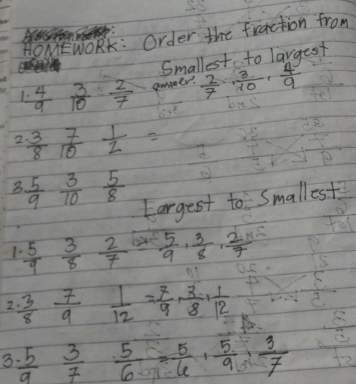 HOMEWORK: Order the fraction from
Smallest to largest
1. 4/9 3/10 2/7 answer: 2/7, 3/10, 4/9
2. 3/8 7/10 1/2 =
3. 5/9 3/10 5/8
Largest to Smallest
1. 5/9 3/8 2/7 = 5/9, 3/8, 2/7
2. 3/8 7/9 1/12 = 7/9, 3/8, 1/12
3. 5/9 3/7 5/6 = 5/6, 5/9, 3/7